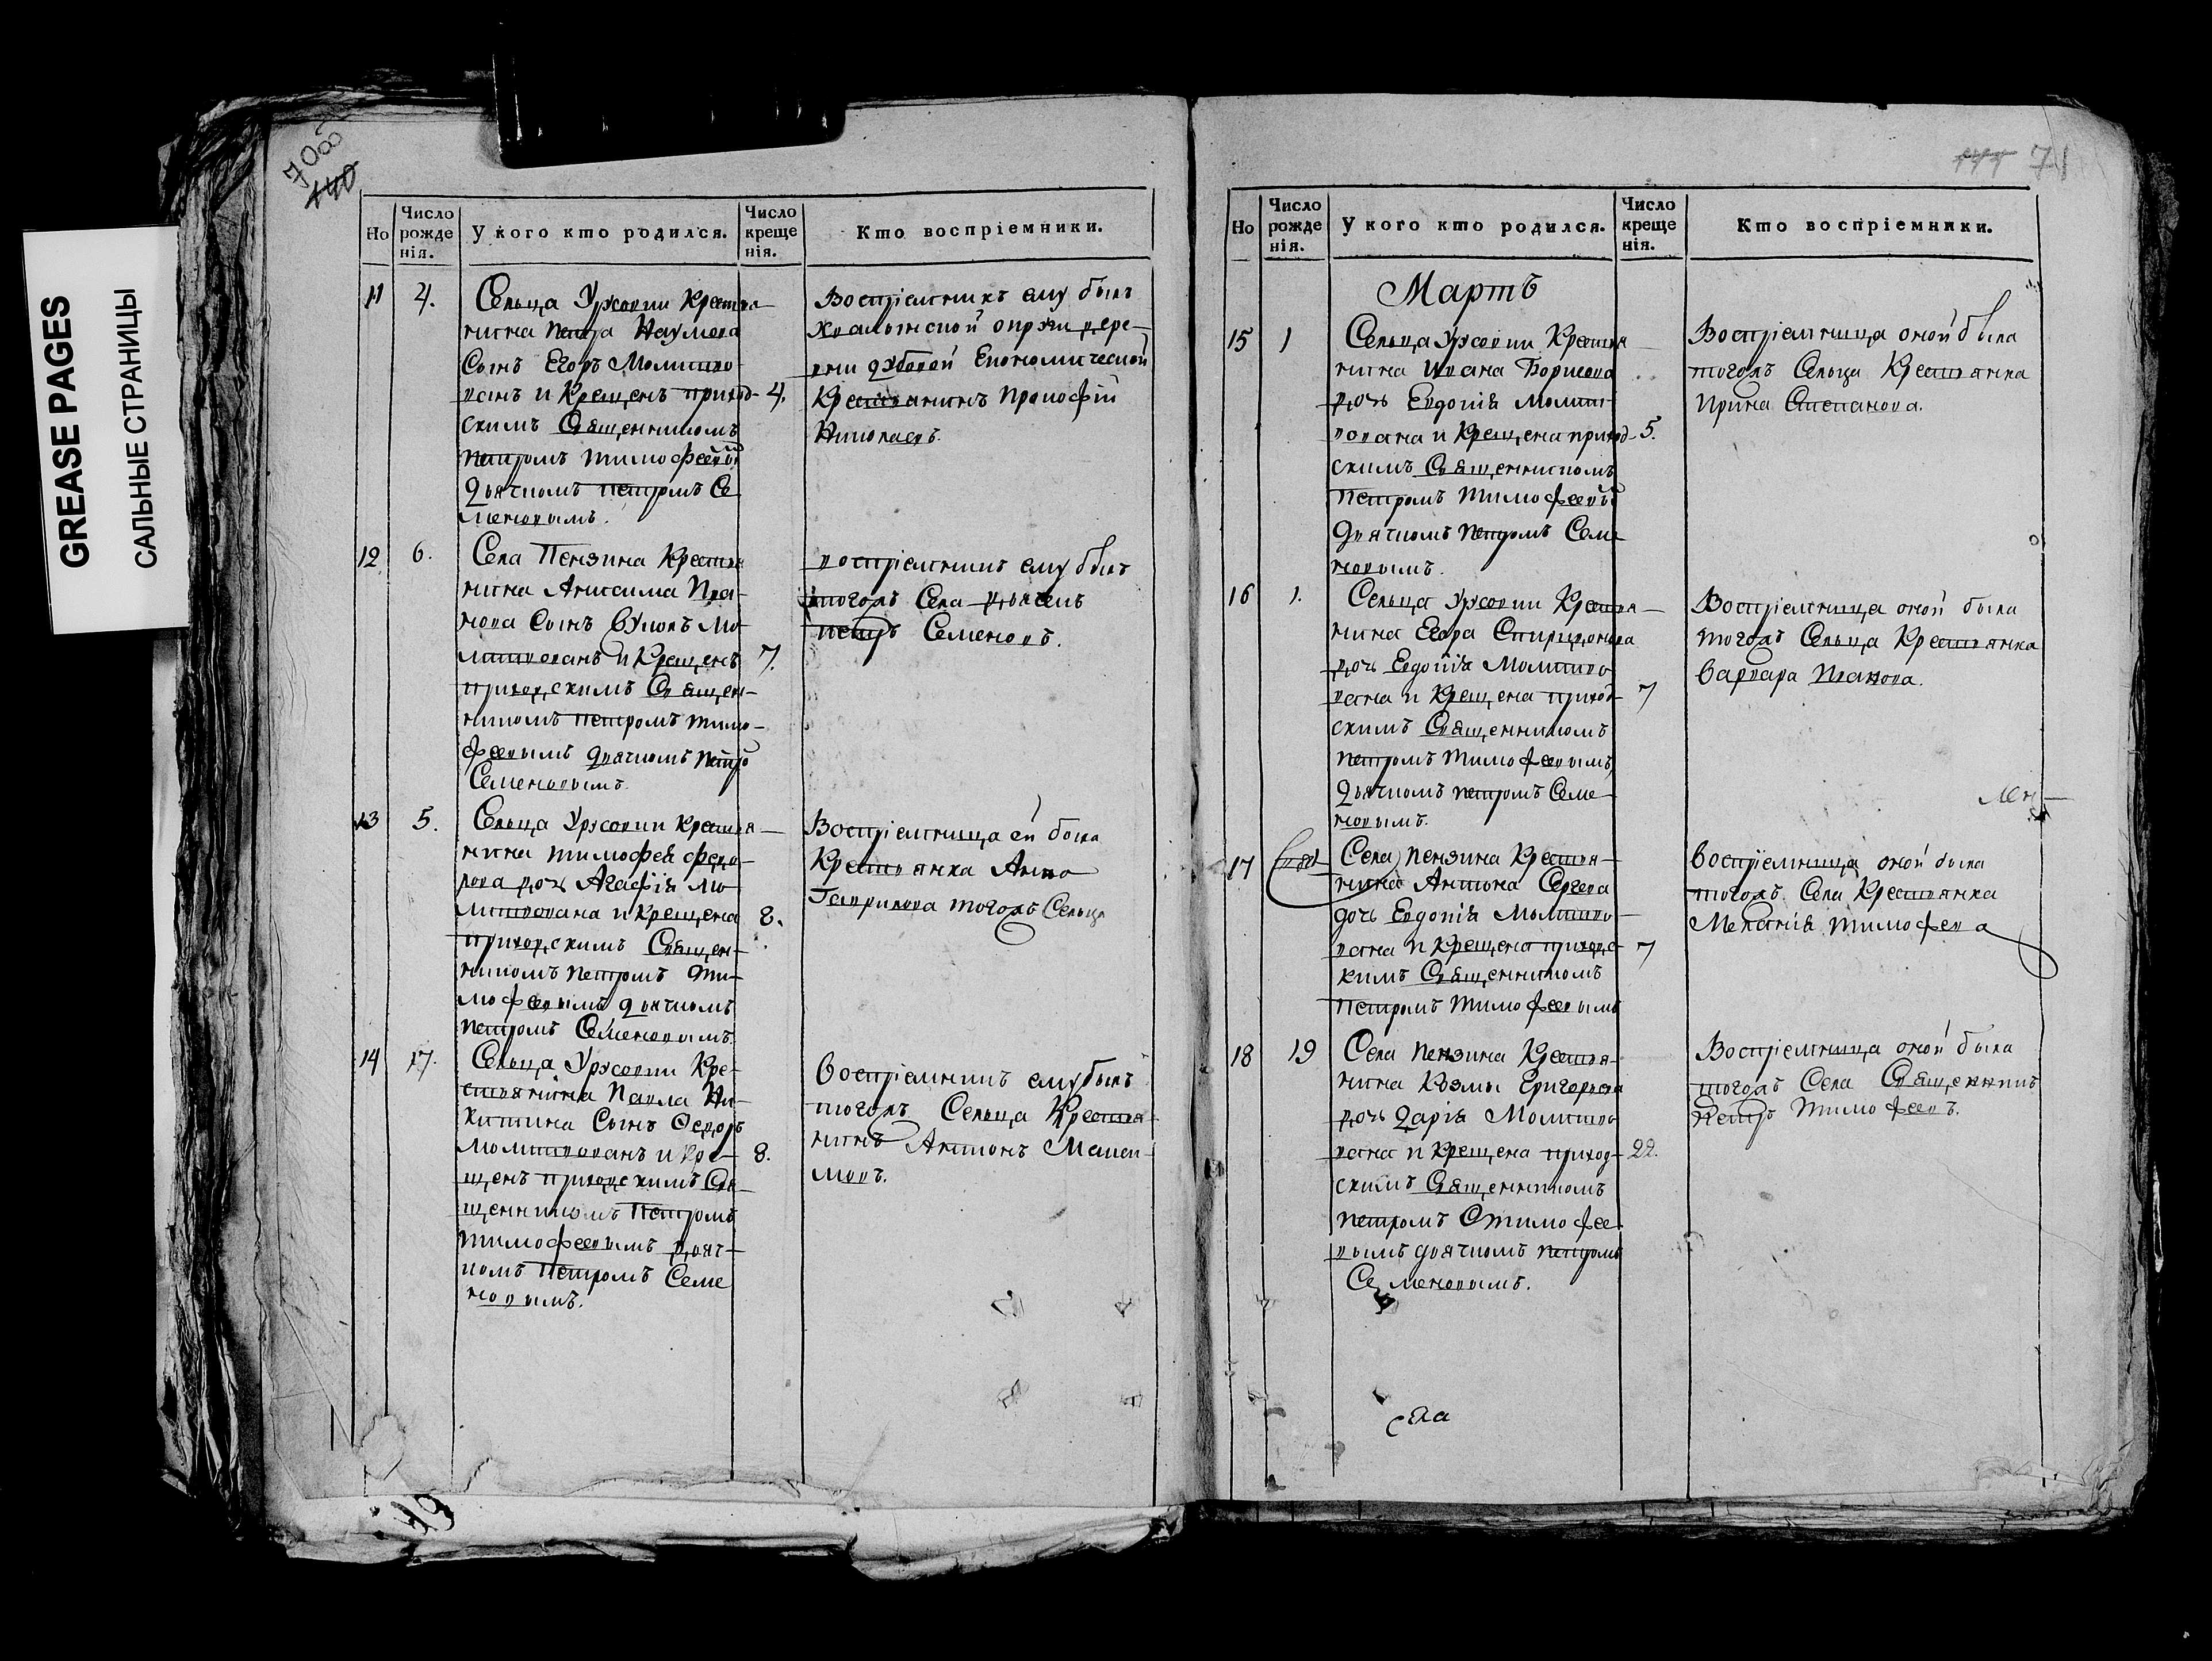 GREASE PAGES
САЛЬНЫЕ СТРАНИЦЫ
70об
140
Но
Число рожде нія.
У кого кто родился.
Число креще нія.
Кто воспріемники.
11
4.
Сельца Урсовки Крестья-
нина Петра Наумова
Сынъ Егоръ Молитво-
ванъ и Крещенъ приход-
скимъ Священникомъ
Петромъ Тимофеевы
Дьячкомъ Петромъ Се
меновымъ.
4.
Воспріемникъ ему былъ
Хвалынской округи дере-
вни Економической
Крестьянинъ Прокофій
Николаевъ.
12
6.
Села Пензина Крестья
нина Анисима
нова Сынъ Мо
литвованъ и Крещенъ
приходскимъ Священ-
никомъ Петромъ Тимо-
феевымъ дьячкомъ Петро
Семеновымъ.
7.
воспріемникъ ему былъ
тогожъ Села дьячекъ
Петръ Семеновъ.
13
5.
Сельца Урсовки Крестья-
нина Тимофея Федо-
рова дочь Агафія Мо
литвована и Крещена
приходскимъ Священ-
никомъ Петромъ Ти-
мофеевымъ дьячкомъ
Петромъ Семеновымъ.
8.
Воспріемница ей была
Крестьянка Анна
Гаврилова тогожъ Сельца
14
17.
Сельца Урсовки Кре-
стьянина Павла Ни-
китина Сынъ Ѳедоръ
Молитвованъ и Кре-
щенъ приходскимъ Свя-
щенникомъ Петромъ
Тимофеевымъ дьяч-
комъ Петромъ Семе
новымъ.
8.
Воспріемникъ ему былъ
тогожъ Сельца Крестья-
нинъ Антонъ Макси-
мовъ.
71
Но
Число рожде нія.
У кого кто родился.
Число креще нія.
Кто воспріемники.
Мартъ
15
1
Сельца Урсовки Крестья-
нина Ивана Борисова
дочь Евдокія Молит-
вована и Крещена приход-
скимъ Священникомъ
Петромъ Тимофеевы
Дьячкомъ Петромъ Семе-
новымъ.
5.
Воспріемница оной была
тогожъ Сельца Крестьянка
Ирина Степанова.
16
1.
Сельца Урсовки Крестья-
нина Егора Спиридонова
дочь Евдокія Молитво
вана и Крещена приход-
скимъ Священникомъ
Петромъ Тимофеевымъ
Дьячкомъ Петромъ Семе-
новымъ.
7
Воспріемница оной была
тогожъ Сельца Крестьянка
Варвара
17
Села Пензина Крестья-
нина Антона Сергева
дочь Евдокія Молитво-
вана и Крещена приходс-
кимъ Священникомъ
Петромъ Тимофеевымъ
7
Воспріемница оной была
тогожъ Села Крестьянка
Меланія Тимофева
18
19
Села Пензина Крестья-
нина Козмы Григорьева
дочь Дарія Молитво
вана и Крещена приход-
скимъ Священникомъ
Петромъ Тимофее
вымъ дьячкомъ Петромъ
Семеновымъ.
22.
Воспріемница оной была
тогожъ Села Священникъ
Петръ Тимофеевъ.